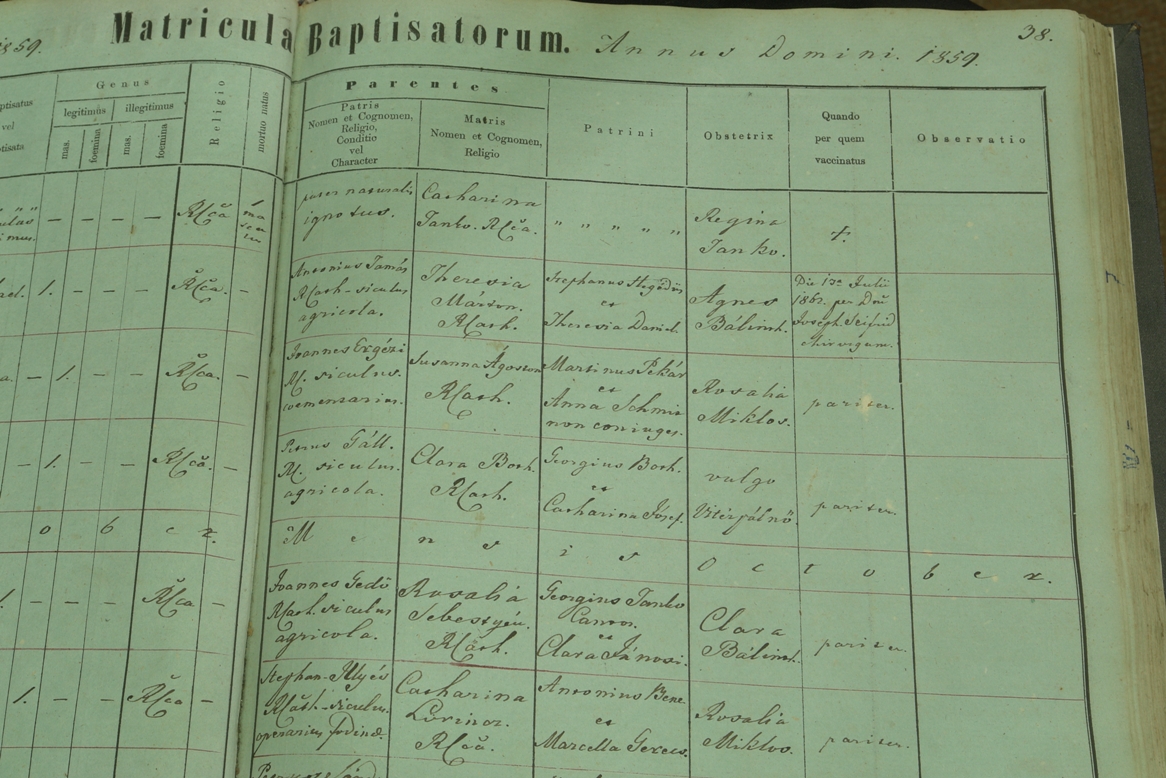 1859.
Matricula Baptisatorum. Annus Domini. 1859.
38.
Genus
legitimus
illegitimus
mas.
foemina
mas.
foemina
Religio
mortuo natus
Parentes
Patris
Nomen et Cognomen,
Religio,
Conditio
vel
Character
Matris
Nomen et Cognomen,
Religio
Patrini
Obstetrix
Quando
per quem
vaccinatus
Observatio
— — — — R Cca
pater naturalis
ignotus.
Catharina
Tanko. R Cca.
" " " " "
Regina
Tanko.
+.
1. — — — R Cca. —
Antonius Tamás
R Cath. siculus
agricola.
Theresia
Márton.
R Cath.
Stephanus Hegedüs
et
Theresia Daniel.
Agnes
Bálinth.
Die 17a Julii
1862. per Dnū
Joseph. Seifrid
chirurgum.
— 1. — — R Cca. —
Joannes Ergézi
RC. siculus.
coementarius.
Susanna Ágoston
R Cath.
Martinus Pekár
et
Anna Schmit
non coniuges.
Rosalia
Miklos.
pariter.
— 1. — — R Cca. —
Petrus Gáll.
RC. siculus.
agricola.
Clara Both.
R Cath.
Georgius Both.
et
Catharina Jósef.
vulgo
Vitérpálnö.
pariter.
o b e r.
Mensis October.
— — — R Cca —
Joannes Gedö
R Cath. siculus
agricola.
Rosalia
Sebestyén.
R Cath.
Georgius Tanko
Cantor.
et
Clara Jánosi.
Clara
Bálinth.
pariter.
1. — — — R Cca —
Stephan. Illyés
R Cath. siculus.
operarius fodinæ.
Catharina
Lörincz.
R Cca.
Antonius Bene.
et
Marcella Gerecs.
Rosalia
Miklos.
pariter.